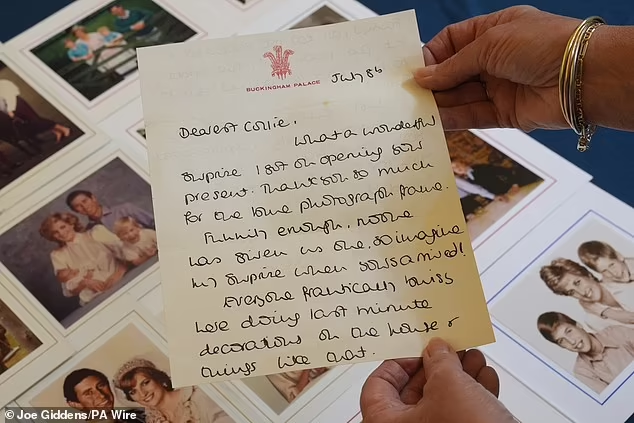 BUCKINGHAM PALACE
July 86
Dearest Collie,
What a wonderful
surprise I got on opening your
present. Thank you so much
for the lovely photograph frame.
Funnily enough, no one
has given us one, so imagine
my surprise when yours arrived!
Everyone frantically busy
here doing last minute
decorations on the house &
things like that.
© Joe Giddens/PA Wire